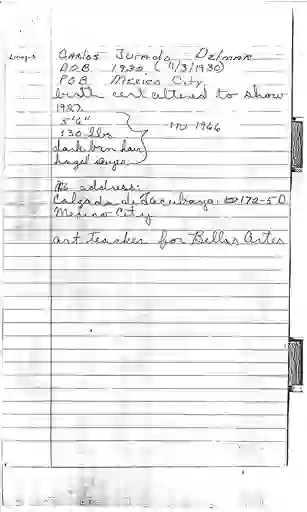 Carlos Jurado - Delmar
D.O.B. 1930 (11/3/1930)
P.O.B. Mexico City
birth cert altered to show
1927.
5'6"
130 lbs
in 1966
dark brn hair
hazel eyes
address:
Calzada de Tacubaya 172-5D
Mexico City
art teacher for Bellas Artes